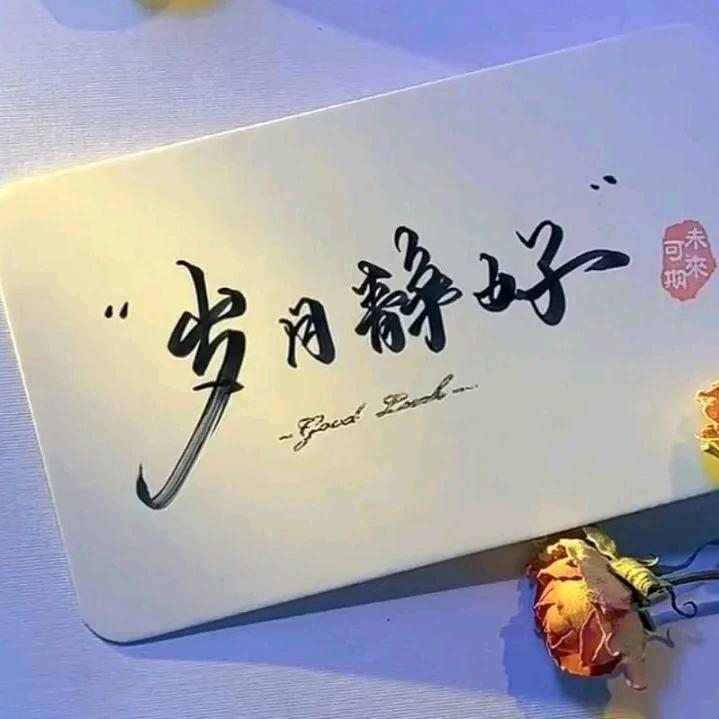 “岁月静好”
-Good Luck-
未来可期